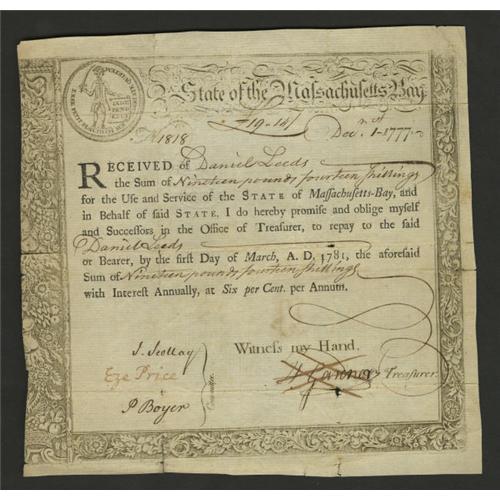 State of the Massachusetts-Bay
£19-14/
No 1818 Dec. 1-1777
RECEIVED of Daniel Leeds
the Sum of Nineteen pounds, fourteen shillings
for the Use and Service of the STATE of Massachusetts-Bay, and
in Behalf of said STATE, I do hereby promise and oblige myself
and Successors in the Office of Treasurer, to repay to the said
Daniel Leeds
or Bearer, by the first Day of March, A. D. 1781, the aforesaid
Sum of Nineteen pounds, fourteen shillings
with Interest Annually, at Six per Cent. per Annum.
Witness my Hand.
J. Scollay
Eze Price
P Boyer
Committee.
H Gardner Treasurer